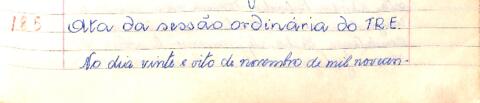 185 Ata da sessão ordinária do T.R.E.
No dia vinte e oito de novembro de mil novecen-